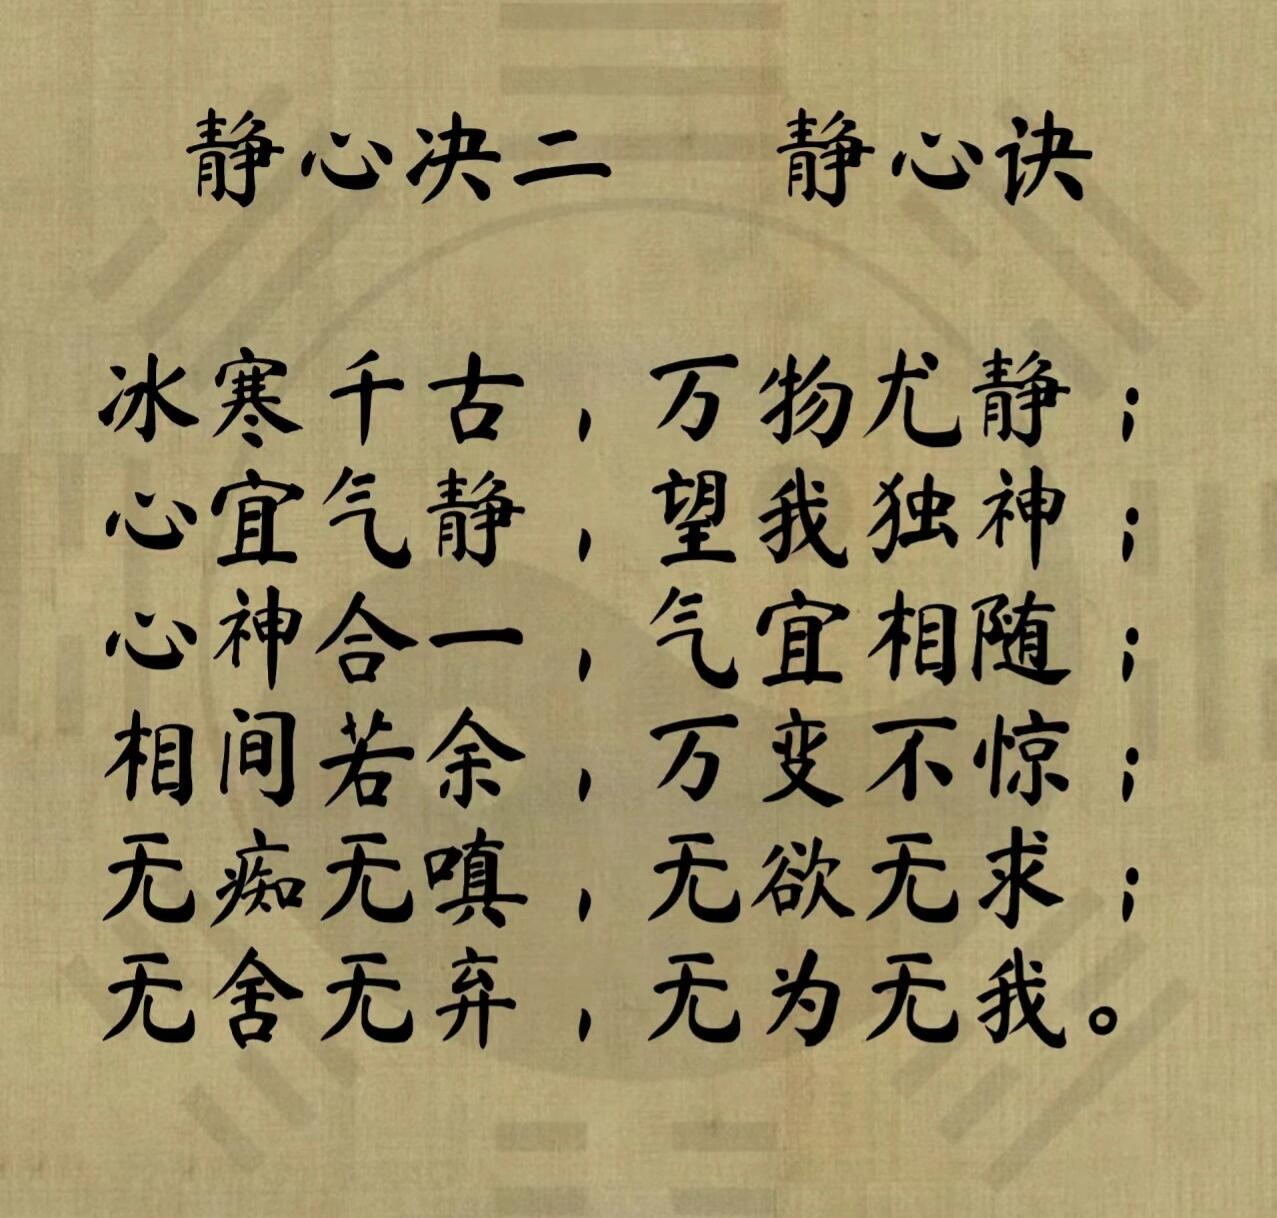 静心决二 静心诀
冰寒千古，万物尤静；
心宜气静，望我独神；
心神合一，气宜相随；
相间若余，万变不惊；
无痴无嗔，无欲无求；
无舍无弃，无为无我。